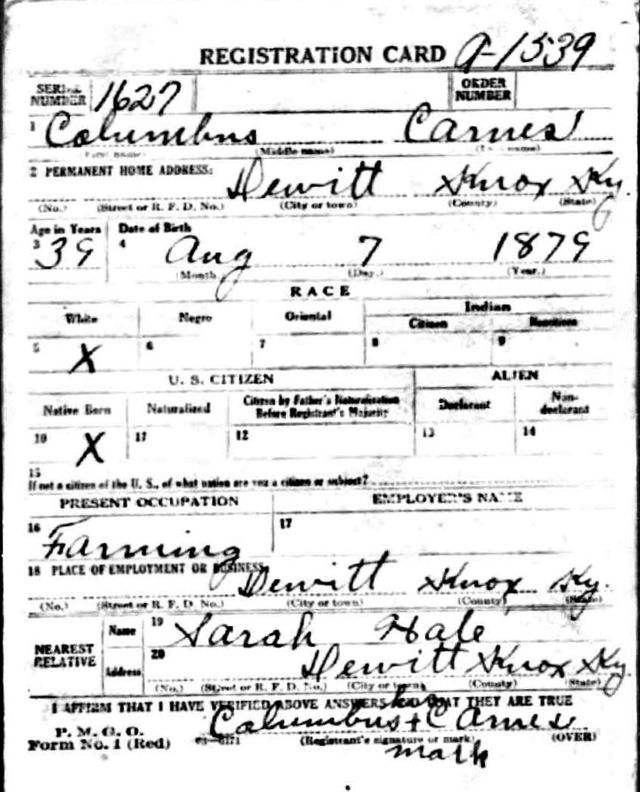 REGISTRATION CARD A-1539
SERIAL NUMBER 1627 ORDER NUMBER
1 Columbus Carnes
(First name) (Middle name) (Last name)
2 PERMANENT HOME ADDRESS: Dewitt Knox Ky.
(No.) (Street or R. F. D. No.) (City or town) (County) (State)
Age in Years Date of Birth
3 39 4 Aug 7 1879
(Month) (Day) (Year.)
RACE
White Negro Oriental Indian
Citizen
5 X 6 7 8 9
U. S. CITIZEN ALIEN
Native Born Naturalized Citizen by Father's Naturalization Before Registrant's Majority Declarant Non-declarant
10 X 11 12 13 14
15
If not a citizen of the U. S., of what nation are you a citizen or subject?
PRESENT OCCUPATION EMPLOYER'S NAME
16 Farming 17
18 PLACE OF EMPLOYMENT OR BUSINESS Dewitt Knox Ky.
(No.) (Street or R. F. D. No.) (City or town) (County) (State)
NEAREST RELATIVE Name 19 Sarah Hale
Address 20 Dewitt Knox Ky
(No.) (Street or R. F. D. No.) (City or town) (County) (State)
I AFFIRM THAT I HAVE VERIFIED ABOVE ANSWERS AND THAT THEY ARE TRUE
P. M. G. O.
Form No. 1 (Red)
his
Columbus + Carnes
(Registrant's signature or mark) (OVER)
mark